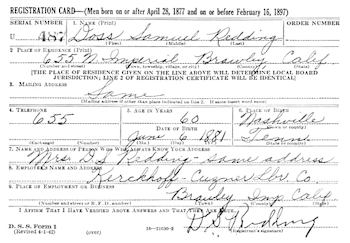 REGISTRATION CARD—(Men born on or after April 28, 1877 and on or before February 16, 1897)
SERIAL NUMBER 1. NAME (Print) ORDER NUMBER
U 487 Doss Samuel Redding
(First) (Middle) (Last)
2. PLACE OF RESIDENCE (Print)
655 N. Imperial Brawley Calif
[THE PLACE OF RESIDENCE GIVEN ON THE LINE ABOVE WILL DETERMINE LOCAL BOARD
JURISDICTION; LINE 2 OF REGISTRATION CERTIFICATE WILL BE IDENTICAL]
3. MAILING ADDRESS
Same
[Mailing address if other than place indicated on line 2. If same insert word same]
4. TELEPHONE 5. AGE IN YEARS 6. PLACE OF BIRTH
655 60 Nashville
DATE OF BIRTH
June 6 1881 Tenn
7. NAME AND ADDRESS OF PERSON WHO WILL ALWAYS KNOW YOUR ADDRESS
Mrs D S Redding - Same address
8. EMPLOYER'S NAME AND ADDRESS
Kerckhoff-Cuzner Lbr Co.
9. PLACE OF EMPLOYMENT OR BUSINESS
Brawley Imp Calif
I AFFIRM THAT I HAVE VERIFIED ABOVE ANSWERS AND THAT THEY ARE TRUE.
D. S. S. Form 1
(Revised 4-1-42) (over) D. S. Redding